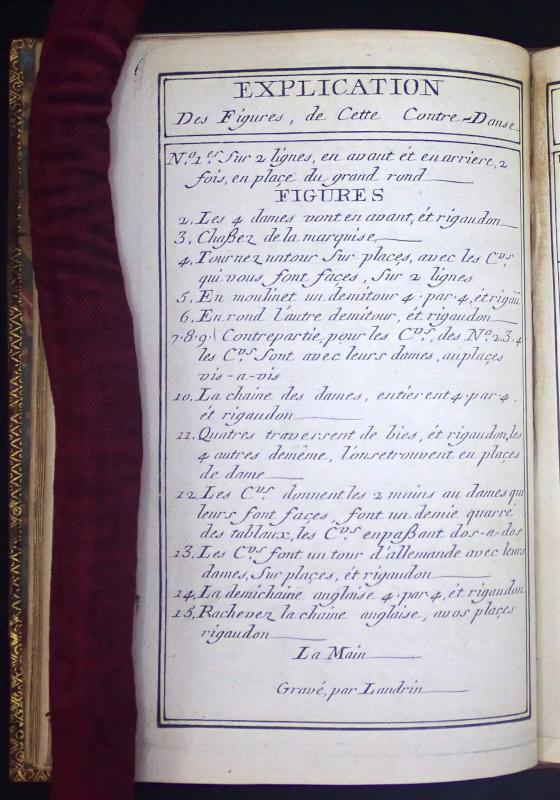 EXPLICATION
Des Figures, de Cette Contre-Danse
N.º 1.er Sur 2 lignes, en avant ét en arriere, 2
fois, en plaçe du grand rond
FIGURES
2. Les 4 dames vont en avant, ét rigaudon
3. Chaßez de la marquise
4. Tournez untour Sur plaçes, avec les C.vs
qui vous font façes, Sur 2 lignes
5. En moulinet un demitour 4. par. 4, ét rigau
6. En rond l'autre demitour, ét rigaudon
7. 8. 9. Contrepartie, pour les C.vs, des N.º 2. 3. 4
les C.vs Sont avec leurs dames, auplaçes
vis-a-vis
10. La chaine des dames, entierent 4. par. 4,
ét rigaudon
11. Quatres traversent de bies, ét rigaudon, les
4 autres demême, l'onsetrouvent en plaçes
de dame
12. Les C.vs donnent les 2 mains au dames qui
leurs font façes, font un demie quarré
des tablaux, les C.vs enpaßant dos-a-dos
13. Les C.vs font un tour d'allemande avec leurs
dames, Sur plaçes, ét rigaudon
14. La demichaine anglaise 4. par 4, ét rigaudon
15. Rachevez la chaine anglaise, avos plaçes
rigaudon
La Main
Gravé, par Landrin